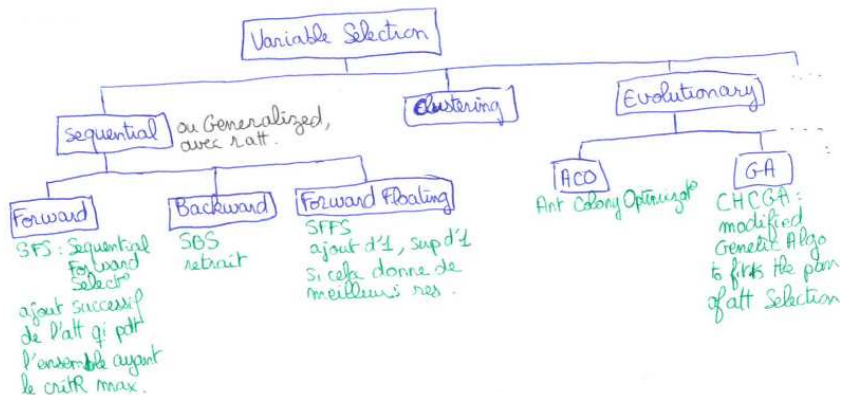 Variable Selection
Sequential
ou Generalized,
avec r att.
Clustering
Evolutionary
....
....
Forward
SFS : Sequential
Forward
Select°
ajout successif
de l'att qi pdt
l'ensemble ayant
le critR max.
Backward
SBS
retrait
Forward Floating
SFFS
ajout d'1, sup d'1
si cela donne de
meilleurs res.
ACO
Ant Colony Optimizat°
GA
CHCGA :
modified
Genetic Algo
to fit the
of att Selection